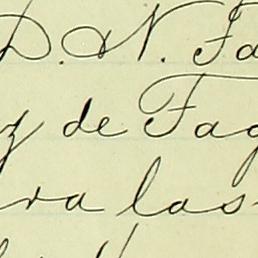 D. N. Fa
y de Fag
ra las